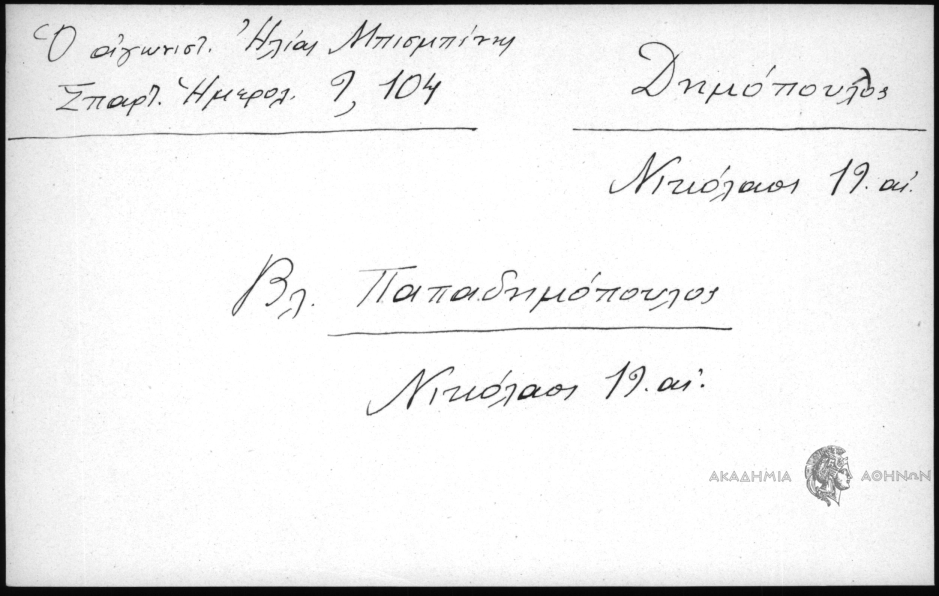 Ὁ ἀγωνιστ. Ἠλίας Μπισμπίνης
Σπαρτ. Ἡμερολ. 9, 104
Δημόπουλος
Νικόλαος 19. αἰ.
Βλ. Παπαδημόπουλος
Νικόλαος 19. αἰ.
ΑΚΑΔΗΜΙΑ ΑΘΗΝΩΝ